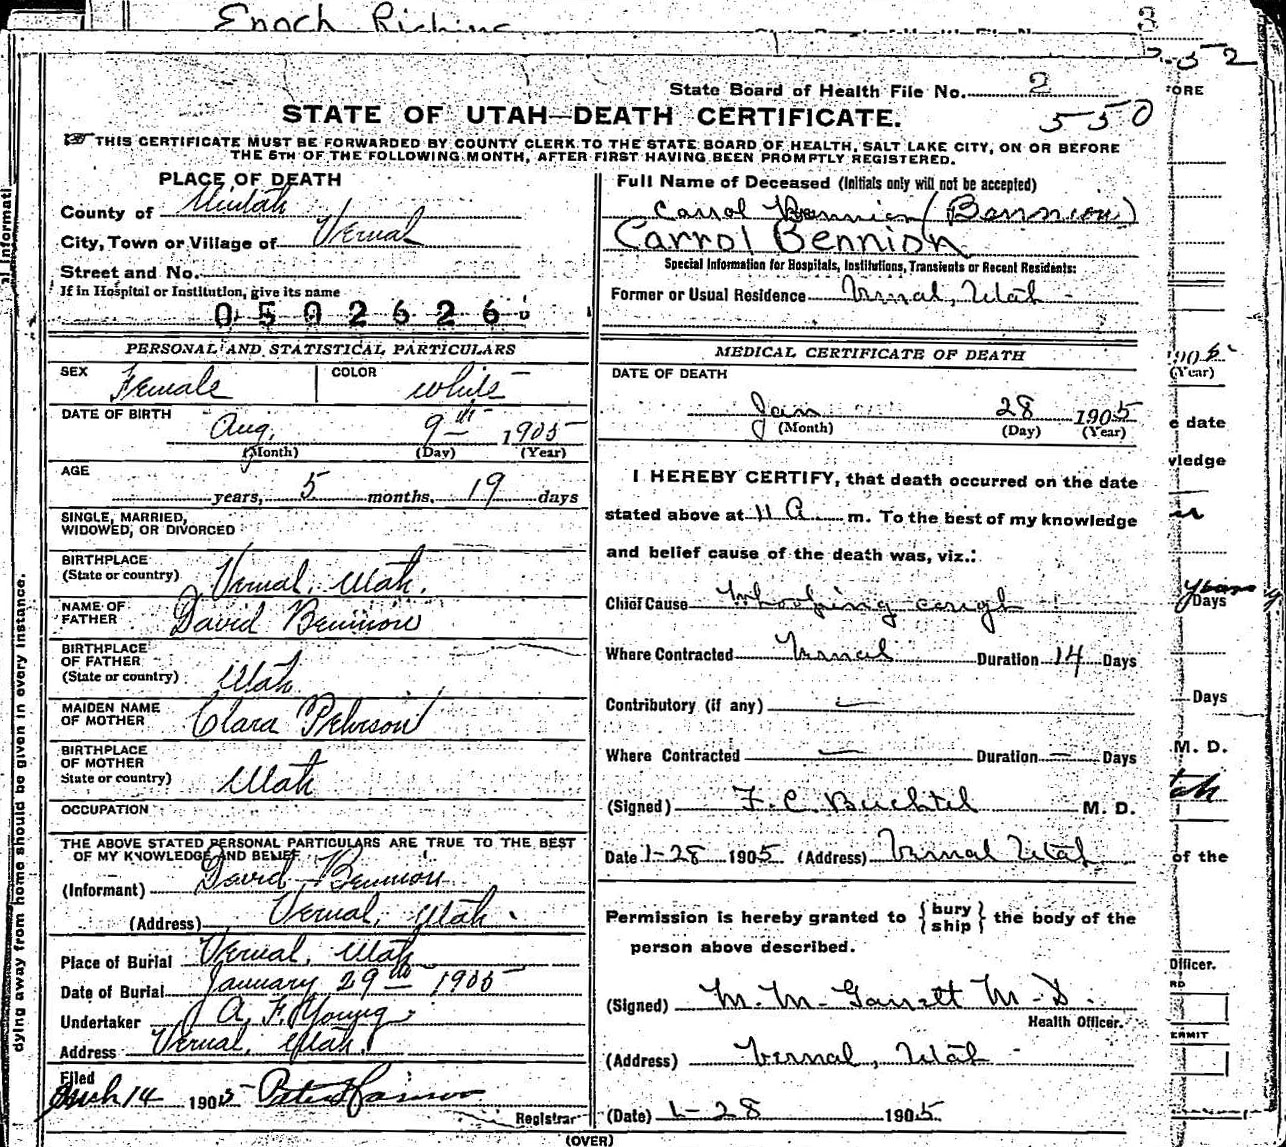 Enoch Richins
3
2-52
State Board of Health File No. 2
550
STATE OF UTAH—DEATH CERTIFICATE.
THIS CERTIFICATE MUST BE FORWARDED BY COUNTY CLERK TO THE STATE BOARD OF HEALTH, SALT LAKE CITY, ON OR BEFORE
THE 5TH OF THE FOLLOWING MONTH, AFTER FIRST HAVING BEEN PROMPTLY REGISTERED.
PLACE OF DEATH
County of Uintah
City, Town or Village of Vernal
Street and No.
If in Hospital or Institution, give its name
0502626
PERSONAL AND STATISTICAL PARTICULARS
SEX Female COLOR white
DATE OF BIRTH Aug. 9th 1905
(Month) (Day) (Year)
AGE
years, 5 months, 19 days
SINGLE, MARRIED,
WIDOWED, OR DIVORCED
BIRTHPLACE
(State or country) Vernal, Utah.
NAME OF
FATHER David Bennion
BIRTHPLACE
OF FATHER
(State or country) Utah
MAIDEN NAME
OF MOTHER Clara Pehrson
BIRTHPLACE
OF MOTHER
State or country) Utah
OCCUPATION
THE ABOVE STATED PERSONAL PARTICULARS ARE TRUE TO THE BEST
OF MY KNOWLEDGE AND BELIEF
(Informant) David Bennion
(Address) Vernal, Utah.
Place of Burial Vernal, Utah
Date of Burial January 29th 1905
Undertaker A. F. Young
Address Vernal, Utah.
Filed
Mch 14 1905
Registrar
(OVER)
Full Name of Deceased (Initials only will not be accepted)
Carrol Bennion (Bennion)
Carrol Bennion
Special Information for Hospitals, Institutions, Transients or Recent Residents:
Former or Usual Residence Vernal, Utah -
MEDICAL CERTIFICATE OF DEATH
DATE OF DEATH
Jan 28 1905
(Month) (Day) (Year)
I HEREBY CERTIFY, that death occurred on the date
stated above at 11 A m. To the best of my knowledge
and belief cause of the death was, viz.:
Chief Cause Whooping cough
Where Contracted Vernal Duration 14 Days
Contributory (if any) —
Where Contracted — Duration — Days
(Signed) F. C. Buchtel M. D.
Date 1-28 1905 (Address) Vernal Utah
Permission is hereby granted to {bury ship} the body of the
person above described.
(Signed) M. M. Garrett M-D.
Health Officer.
(Address) Vernal, Utah -
(Date) 1-28 1905
dying away from home should be given in every instance.
al Informati
ORE
1905
(Year)
e date
vledge
years
Days
Days
M. D.
tah
of the
Officer.
RD
ERMIT